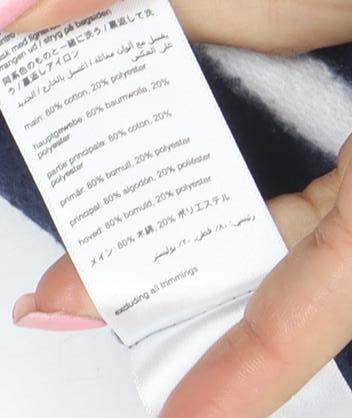 ask med lignende
mangen ud / stryg på bagsiden
同系色のものと一緒に洗う / 裏返して洗
う / 裏返しアイロン
يغسل مع ألوان مماثلة / اغسل بالخارج / الحديد
على العكس
main: 80% cotton, 20% polyester
hauptgewebe: 80% baumwolle, 20%
polyester
partie principale: 80% coton, 20%
polyester
primär: 80% bomull, 20% polyester
principal: 80% algodón, 20% poliéster
hoved: 80% bomuld, 20% polyester
メイン: 80% 木綿, 20% ポリエステル
رئيسي: ٨٠٪ قطن, ٢٠٪ بوليستر
excluding all trimmings